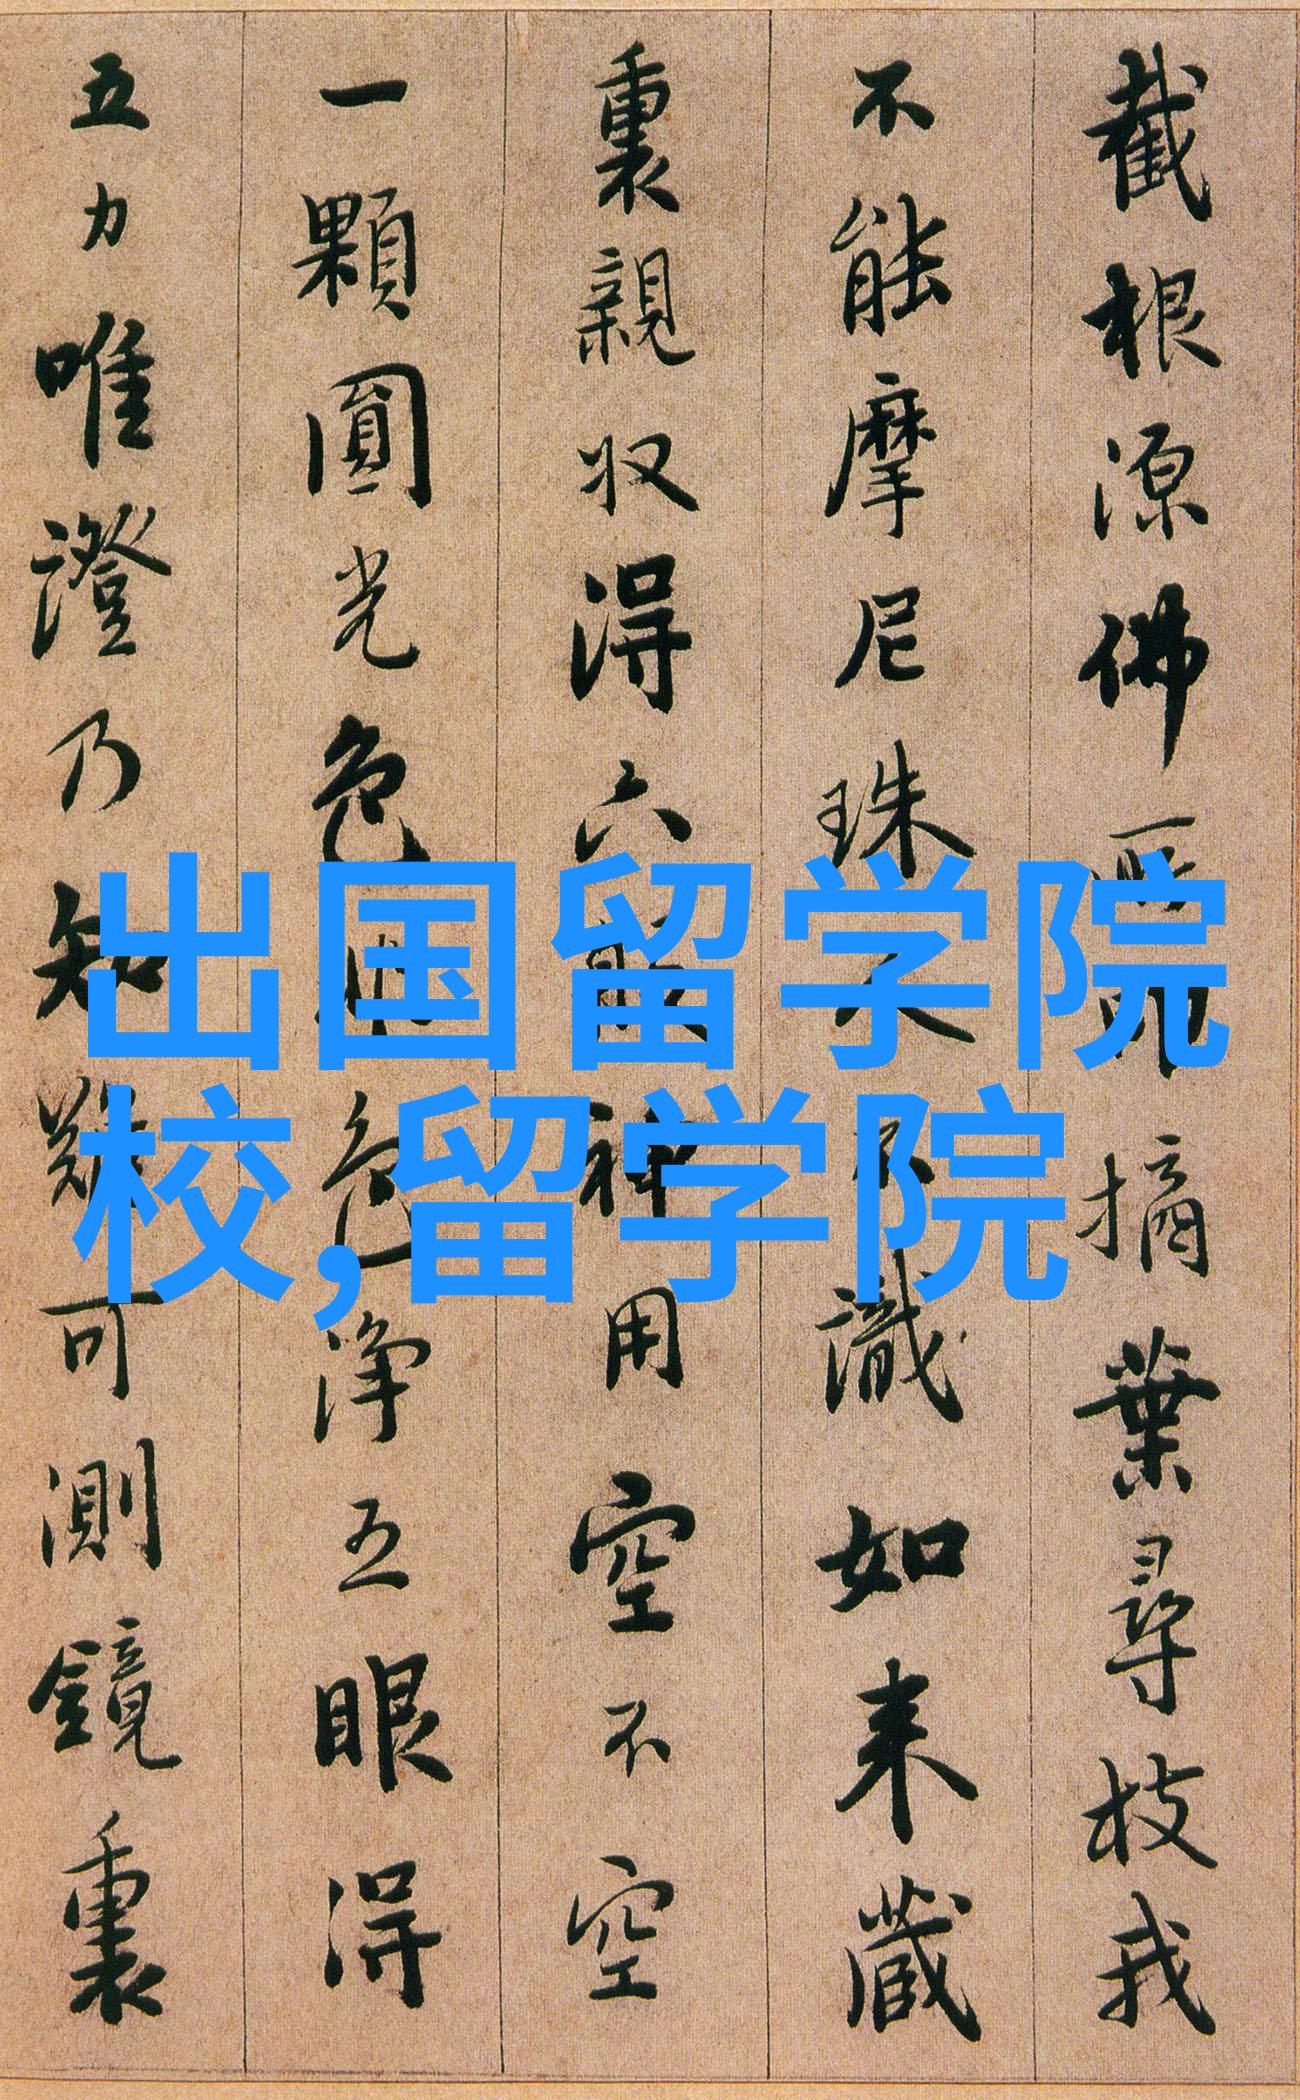 截根源佛所印摘葉尋枝我
不能摩尼珠人不識如来藏
裏親収得六般神用空不空
一顆圓光色非色淨五眼得
五力唯證乃知難可測鏡裏
出国留学院
校,留学院